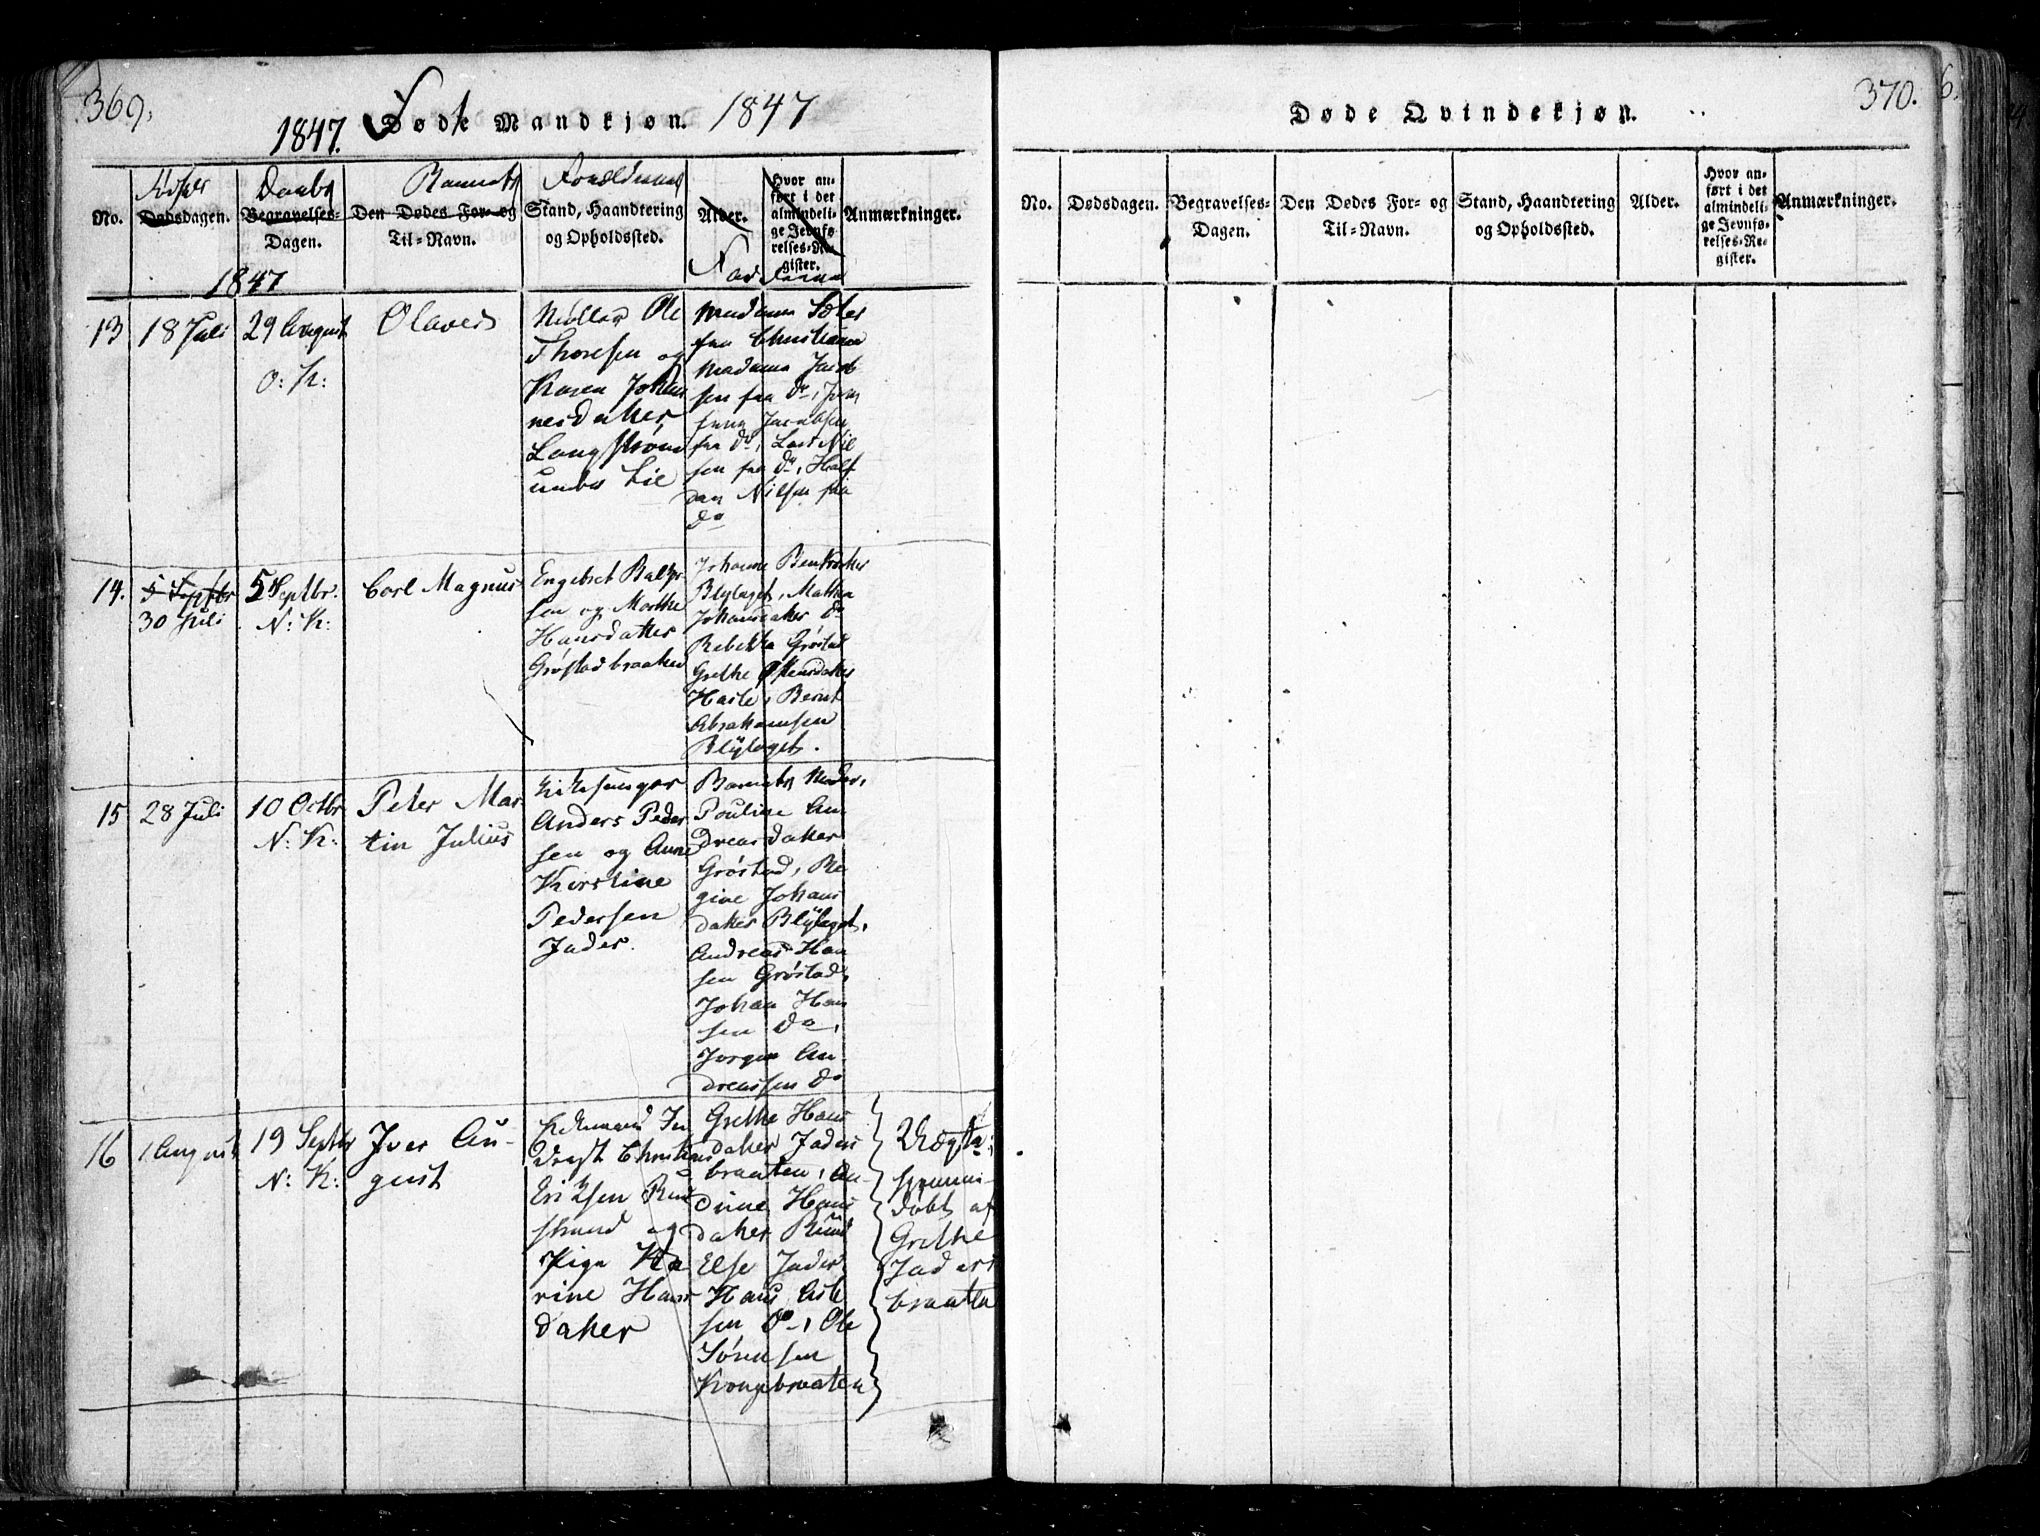 369.
1847. Døde Mandkjøn. 1847
Daabs
Barnets
Forældrenes
No.
Dødsdagen.
Begravelses-
Dagen.
Den Dødes For- og
Til-Navn.
Stand, Haandtering
og Opholdssted.
Alder.
Hvor an-
ført i det
almindeli-
ge Jevnfø-
relses-Re-
gister.
Anmærkninger.
1847
13
18 Juli
29 August
O: K:
Olaves
Møller Ole
Thoresen og
Karen Johan
nesdatter
Langstrøm
unds Eie
Madame
fra Christiania
Madame Jacob
sen fra do, Jom
fru Jacobsen
fra do, Lars Nil
sen fra do, Half
dan Nilsen fra
do
14.
5 Septbr
30 Juli
5 Septbr.
N: K:
Carl Magnus
Engebret
sen og Marthe
Hansdatter
Grøstadbraaten
Johanne
Blylaget, Mathea
Johansdatter do
Rebekka Grøstad
Grethe
Hasle, Bernt
Abrahamsen
Blylaget.
15
28 Juli
10 Octbr
N: K:
Peter Mar
tin Julius
Kirkesanger
Anders Peder
sen og Anne
Kirstine
Pedersen
Jader.
Barnets Moder,
Pouline An
dreasdatter
Grøstad, Re
gine Johans
datter Blylaget,
Andreas Han
sen Grøstad,
Johan Han
sen do,
Jørgen An
dreassen do
16
1 August
19 Septbr
N: K:
Iver Au-
gust
Christian
Eriksen
og
Pige Ka
rine Hans
datter
Grethe Hans
datter Jaders
braaten, An
dine Hans
datter Ruud
Else Jader
Hans
sen do, Ole
Sørensen
Kongebraaten
Uægte:
døbt af
Grethe
Jaders
braaten
370.
Døde Qvindekjøn.
No.
Dødsdagen.
Begravelses-
Dagen.
Den Dødes For- og
Til-Navn.
Stand, Haandtering
og Opholdssted.
Alder.
Hvor an-
ført i det
almindeli-
ge Jevnfø-
relses-Re-
gister.
Anmærkninger.